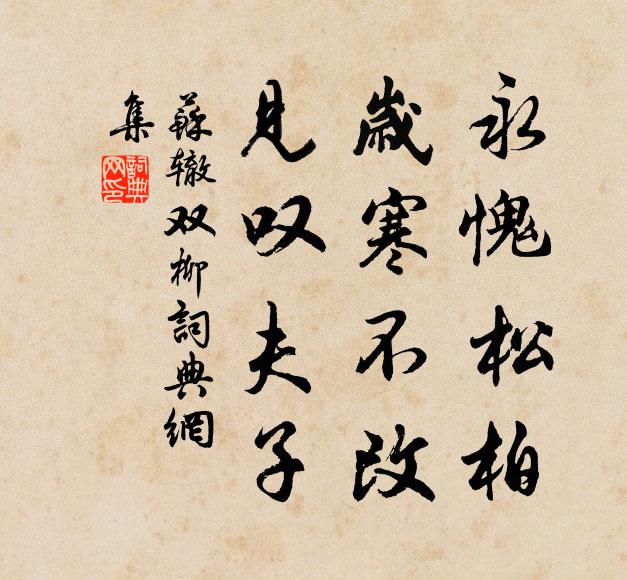 永愧松柏
歲寒不改
見叹夫子
蘇辙双柳詞典網
集
詞典
网印